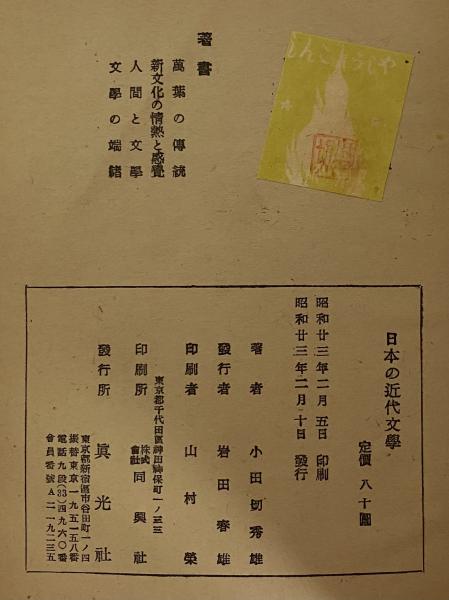 やしうれこんし
著書
萬葉の傳統
新文化の情熱と感覺
人間と文學
文學の端緒
日本の近代文學
定價 八十圓
昭和廿三年二月五日 印刷
昭和廿三年二月十日 發行
著者 小田切秀雄
發行者 岩田春雄
印刷者 山村榮
東京都千代田區神田神保町一ノ三三
印刷所 株式會社 同興社
發行所 眞光社
東京都新宿區市谷田町一ノ四
振替東京一九五一五八番
電話九段(33)四九六〇番
會員番號A二一九二三五